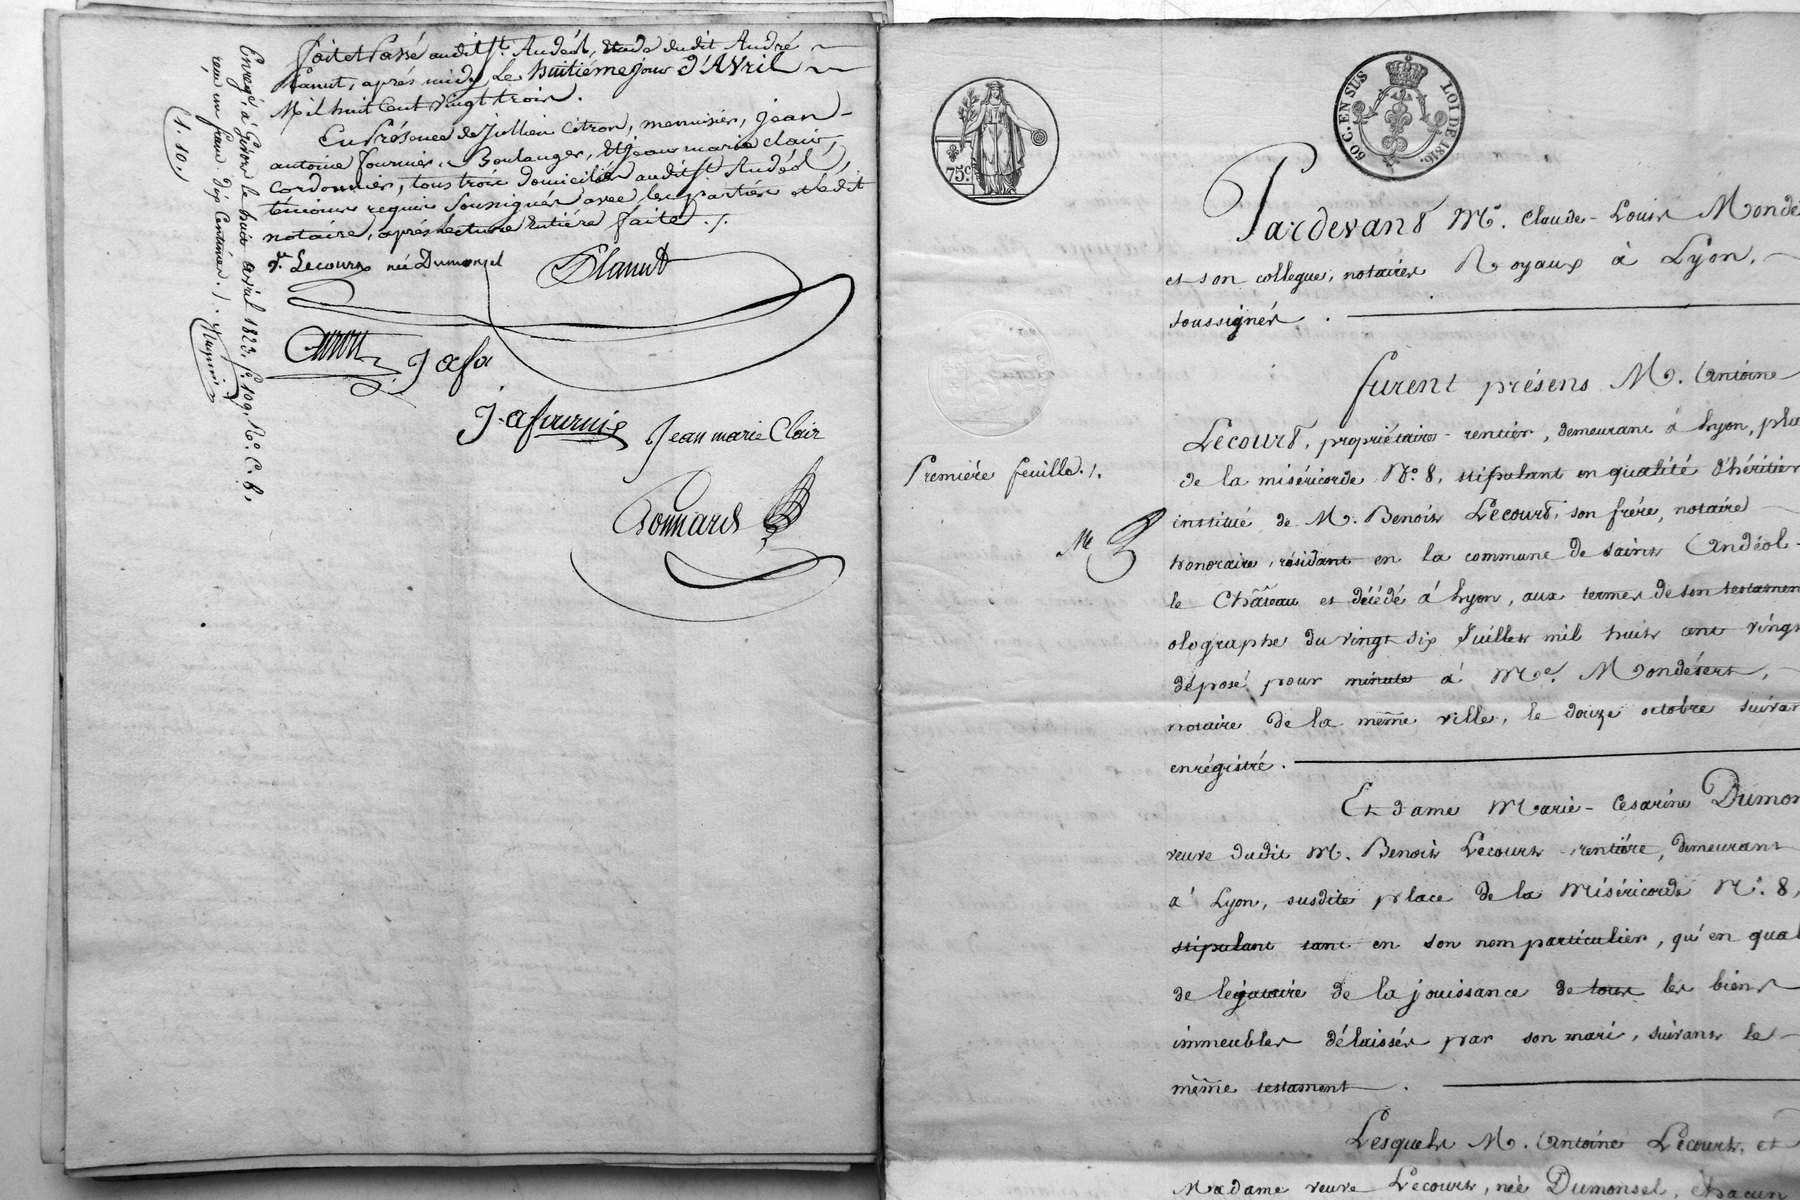 fait et Passé audit St. Andéol, Etude dudit André
Canut, après midy Le huitième jour D'Avril
Mil huit Cent vingt trois.
En Présence de Jullien Citron, menuisier, Jean-
antoine fournier, Boulanger, et Jean marie clair,
cordonnier, tous trois domiciliés audit St. Andéol,
témoins requis soussignés avec les parties et ledit
notaire, après Lecture Entière faite ./.
Ve. Lecourt née Dumonsel
J a fo
J. a fournie
Jean marie Clair
Donnard
Enregé. à Givors le huit avril 1823, fo. 109. Ro. C. 8,
reçu un franc dix Centimes ./.
(1. 10,)
75 c.
60 C. EN SUS LOI DE 1816.
Première feuille ./.
Pardevant Me. Claude-Louis Mondé
et son collegue, notaires Royaux à Lyon,
soussignés.
furent présens M. Antoine
Lecourt, propriétaire-rentier, demeurant à Lyon, pla
de la miséricorde No. 8, stipulant en qualité d'héritier
institué de M. Benoit Lecourt, son frére, notaire
honoraire, résidant en la commune de saint Andéol-
le Château et décédé à Lyon, aux termes de son testamen
olographe du vingt six Juillet mil huit cent vingt
déposé pour minute à Me. Mondésert,
notaire de la même ville, le douze octobre suivan
enrégistré.
Et dame Marie-Cesarine Dumon
veuve dudit M. Benoit Lecourt rentière, demeurant
à Lyon, susdite place de la Miséricorde No. 8,
stipulant tant en son nom particulier, qu'en qual
de légataire de la jouissance de tous les biens
immeubles délaissés par son mari, suivant le
même testament.
Lesquels M. Antoine Lecourt, et
Madame veuve Lecourt, née Dumonsel, chacun